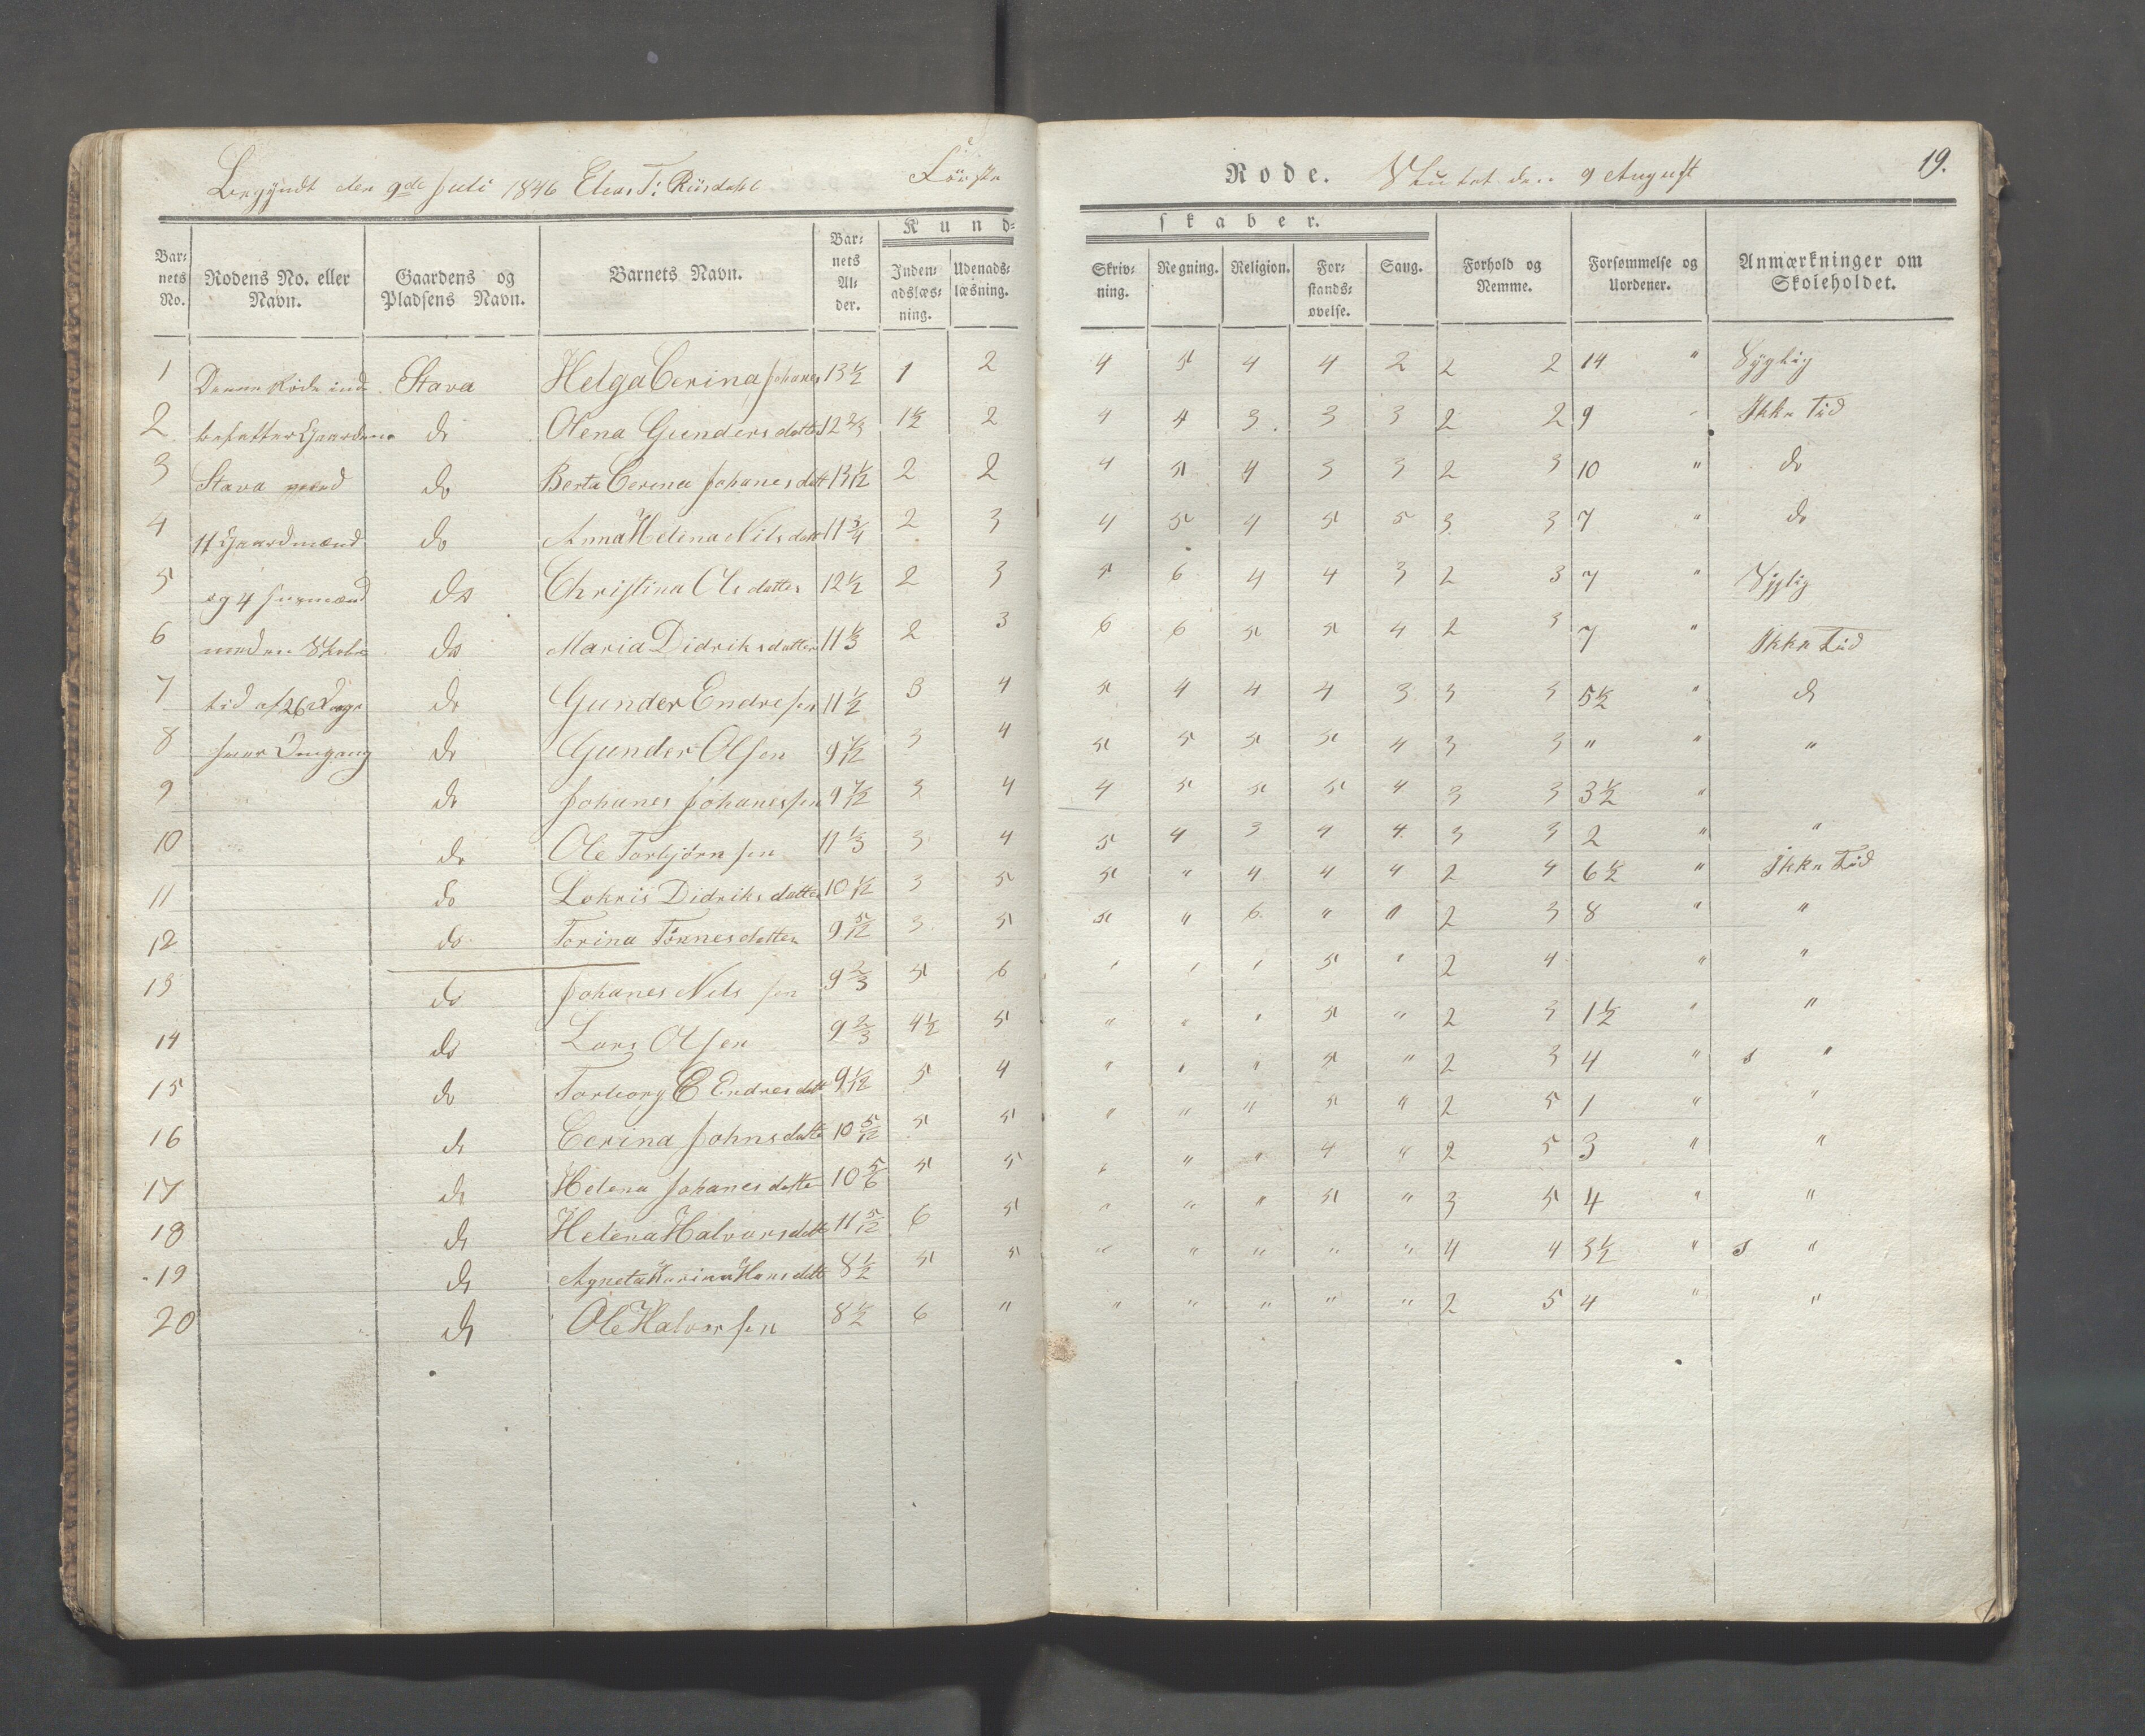 Begyndt den 9de Juli 1846 Elias T: Riisdahl Förste Rode. Sluttet den 9 August 19.
Kundskaber.
Barnets No. Rodens No. eller Navn. Gaardens og Pladsens Navn. Barnets Navn. Barnets Alder. Indenadslæsning. Udenadslæsning. Skrivning. Regning. Religion. Forstandsøvelse. Sang. Forhold og Nemme. Forsømmelse og Uordener. Anmærkninger om Skoleholdet.
1 Denne Rode ind Stava Helga Cerina Johanes 13 1/2 1 2 4 5 4 4 2 2 2 14 " Syglig
2 befatter Gaardene do Olena Gundersdatter 12 2/3 1 1/2 2 4 4 3 3 3 2 2 9 " Ikke Tid
3 Stava med do Berta Cerina Johanesdatt 13 1/12 2 2 4 5 4 3 3 2 3 10 " do
4 11 Gaardmænd do Anna Helena Nilsdatt 11 3/4 2 3 4 5 4 5 5 3 3 7 " do
5 og 4 Huusmænd do Christina Olsdatter 12 1/2 2 3 5 6 4 4 3 2 3 7 " Syglig
6 med en Skole do Maria Didriksdatter 11 1/3 2 3 6 6 5 5 4 2 3 7 " Ikke Tid
7 tid af 26 Dage do Gunder Endresen 11 1/2 3 4 5 4 4 4 3 3 3 5 1/2 " do
8 hver Omgang do Gunder Olsen 9 7/12 3 4 5 5 5 5 4 3 3 " " "
9 do Johanes Johanessen 9 7/12 3 4 4 5 5 5 4 3 3 3 1/2 "
10 do Ole Torbjörnsen 11 1/3 3 4 5 4 3 4 4 3 3 2 " "
11 do Lokris Didriksdatter 10 1/12 3 5 5 " 4 4 4 2 4 6 1/2 " Ikke Tid
12 do Torina Tönnesdatter 9 5/12 3 5 5 " 6 " " 2 3 8 " "
13 do Johanes Nilssen 9 2/3 5 6 " " " 5 " 2 4 " "
14 do Lars Olsen 9 2/3 4 1/2 5 " " " 5 " 2 3 1 1/2 " "
15 do Torborg C Endresdatt 9 1/12 5 4 " " " 5 " 2 3 4 " s "
16 do Cerina Johnsdatte 10 5/12 5 5 " " " 5 " 2 5 1 " "
17 do Helena Johanesdatter 10 5/6 5 5 " " " 4 " 2 5 3 " "
18 do Helena Halvorsdatt 11 5/12 6 5 " " " 5 " 3 5 4 " "
19 do Agneta Karina Hansdatt 8 1/2 5 5 " " " " " 4 4 3 1/2 " s "
20 do Ole Halvorsen 8 1/2 6 " " " " " " 2 5 4 " "